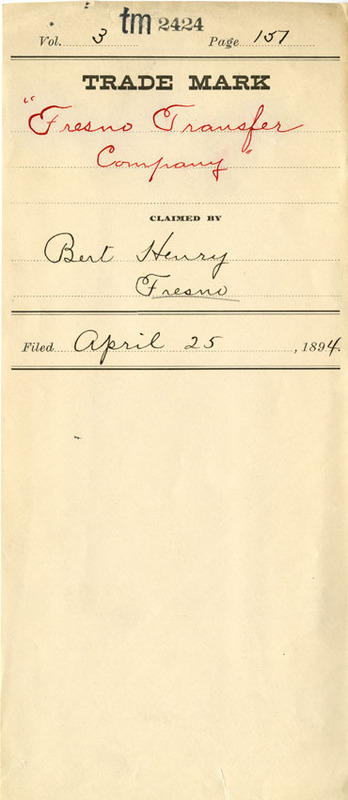 tm 2424
Vol. 3 Page 151
TRADE MARK
"Fresno Transfer
Company"
CLAIMED BY
Bert Henry
Fresno
Filed April 25, 1894.